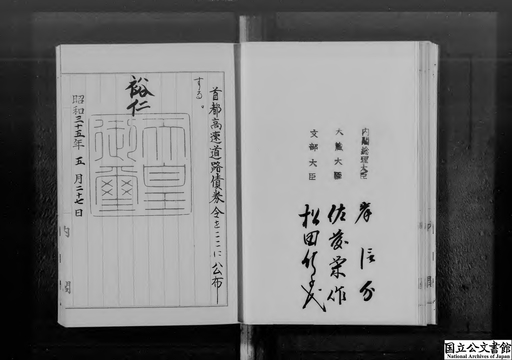 首都高速道路債券令をここに公布
する。
裕仁
天皇
御璽
昭和三十五年 五月二十七日
内閣
内閣総理大臣 岸信介
大蔵大臣 佐藤栄作
文部大臣 松田竹千代
国立公文書館
National Archives of Japan